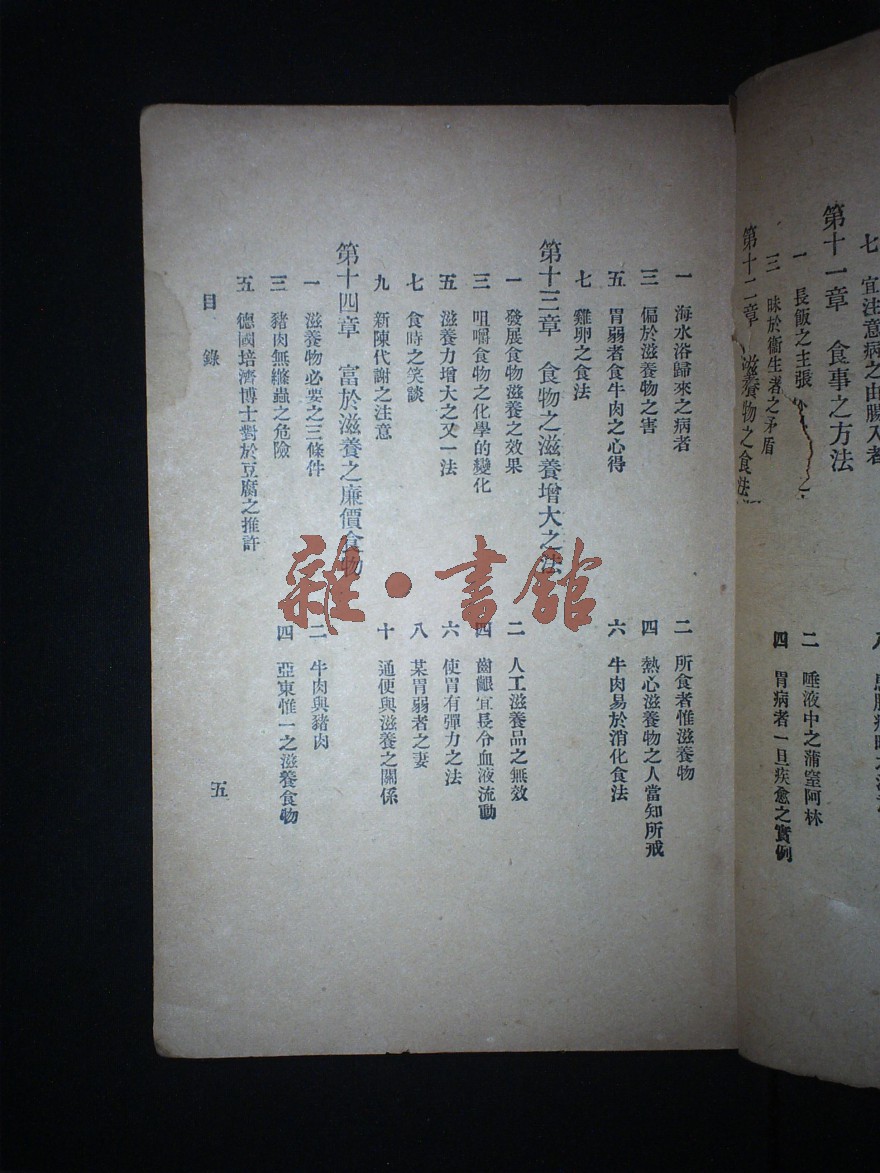 七 宜注意病之由腸入者
第十一章 食事之方法
一 長飯之主張
二 唾液中之蒲窒阿林
三 昧於衞生者之矛盾
四 胃病者一旦疾愈之實例
第十二章 滋養物之食法
一 海水浴歸來之病者
二 所食者惟滋養物
三 偏於滋養物之害
四 熱心滋養物之人當知所戒
五 胃弱者食牛肉之心得
六 牛肉易於消化食法
七 雞卵之食法
第十三章 食物之滋養增大之法
一 發展食物滋養之效果
二 人工滋養品之無效
三 咀嚼食物之化學的變化
四 齒齦宜長令血液流動
五 滋養力增大之又一法
六 使胃有彈力之法
七 食時之笑談
八 某胃弱者之妻
九 新陳代謝之注意
十 通便與滋養之關係
第十四章 富於滋養之廉價食物
一 滋養物必要之三條件
二 牛肉與豬肉
三 豬肉無縧蟲之危險
四 亞東惟一之滋養食物
五 德國培濟博士對於豆腐之推許
目錄
五
雜·書館